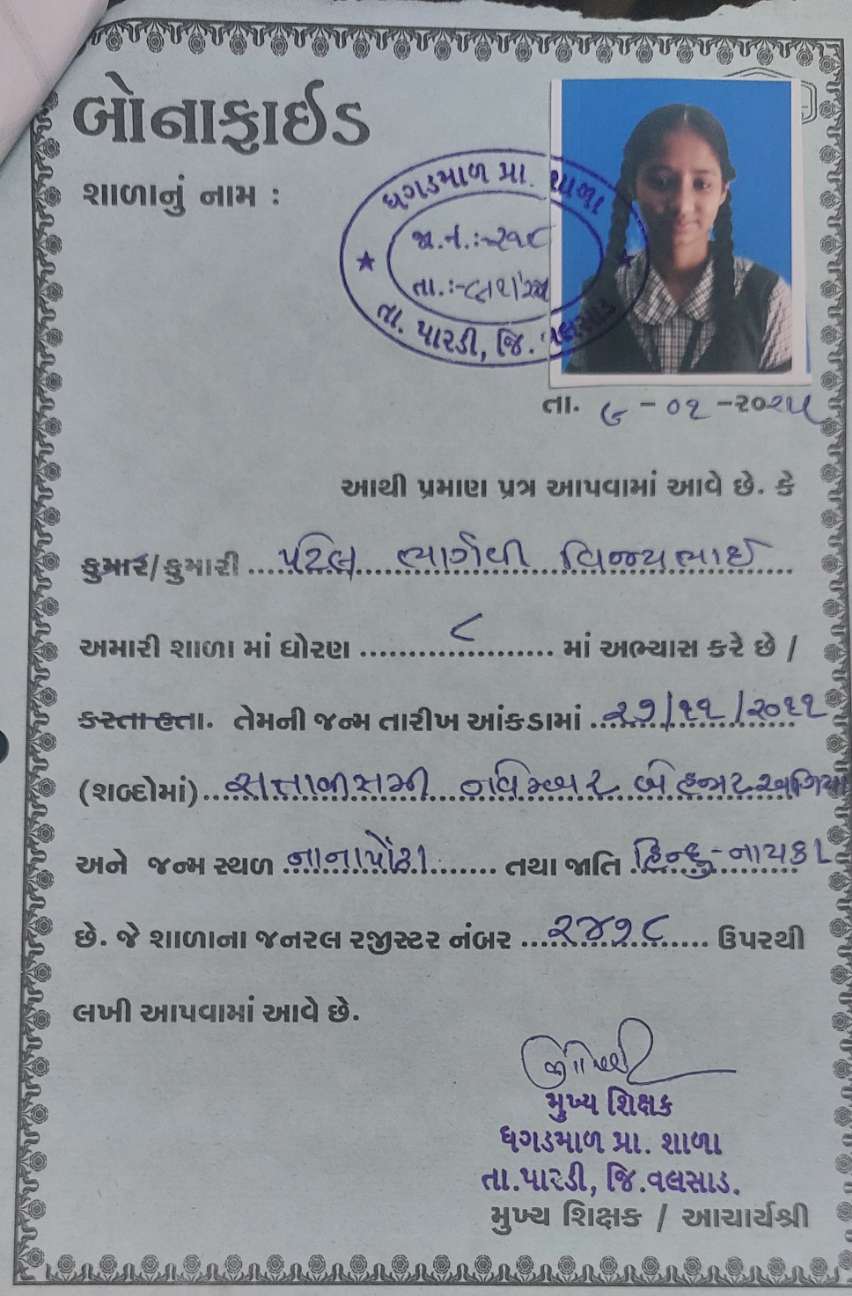 બોનાફાઈડ
શાળાનું નામ :
ધગડમાળ પ્રા. શાળા
જા.નં.:-૨૧૮
તા.:-
તા. પારડી, જિ. વલસાડ
તા. ૬-૦૧-૨૦૨૫
આથી પ્રમાણ પત્ર આપવામાં આવે છે. કે
કુમાર/કુમારી ....પટેલ ભાર્ગવી વિજયભાઈ....
અમારી શાળા માં ધોરણ ....૮.... માં અભ્યાસ કરે છે /
કરતા હતા. તેમની જન્મ તારીખ આંકડામાં ..૨૭/૧૧/૨૦૧૧
(શબ્દોમાં)..સત્તાવીસમી નવેમ્બર બે હજાર અગિયાર
અને જન્મ સ્થળ .નાનાપોંઢા...... તથા જાતિ .હિન્દુ-નાયકા
છે. જે શાળાના જનરલ રજીસ્ટર નંબર ...૨૪૭૮.... ઉપરથી
લખી આપવામાં આવે છે.
મુખ્ય શિક્ષક
ધગડમાળ પ્રા. શાળા
તા.પારડી, જિ.વલસાડ.
મુખ્ય શિક્ષક / આચાર્યશ્રી